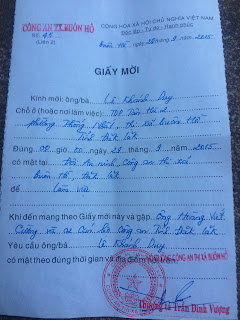 CÔNG AN TX BUÔN HỒ
Số: 48
(Liên 2)
CỘNG HÒA XÃ HỘI CHỦ NGHĨA VIỆT NAM
Độc lập - Tự do - Hạnh phúc
Buôn Hồ, ngày 28 tháng 9 năm 2015
GIẤY MỜI
Kính mời: ông/bà Lê Khánh Duy
Chỗ ở (hoặc nơi làm việc) TDP Tân Hà
phường Thống Nhất, thị xã Buôn Hồ
Tỉnh Đắk Lắk
Đúng 08 giờ 00 ngày 29 tháng 9 năm 2015
có mặt tại Đội An ninh, Công an thị xã
Buôn Hồ, Đắk Lắk
để làm việc
Khi đến mang theo Giấy mời này và gặp Ông Hoàng Việt
Cường và các Cán bộ Công an Tỉnh Đắk Lắk
Yêu cầu ông/bà Lê Khánh Duy
có mặt theo đúng thời gian và địa điểm
CÔNG AN THỊ XÃ BUÔN HỒ
Thượng tá Trần Đình Vượng